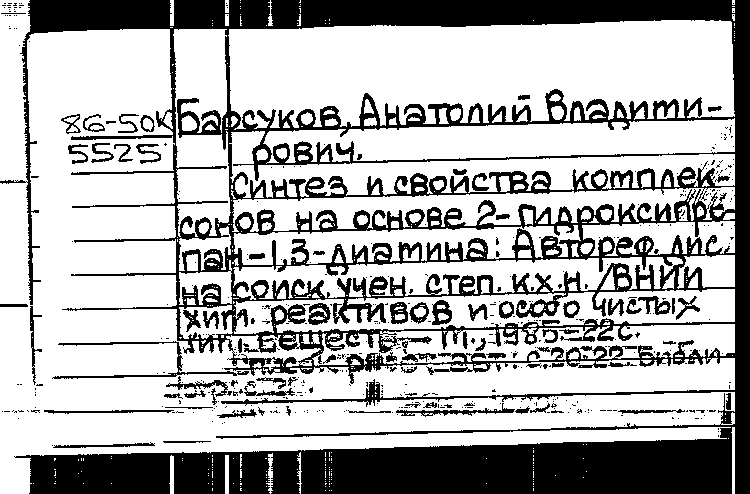 86-50К
5525
Барсуков, Анатолий Владими-
рович.
Синтез и свойства комплек-
сонов на основе 2-гидроксипро-
пан-1,3-диамина: Автореф. дис.
на соиск. учен. степ. к.х.н. /ВНИИ
хим. реактивов и особо чистых
хим. веществ. — М., 1985.-22с.
Список работ авт.: с.20-22. Библи-